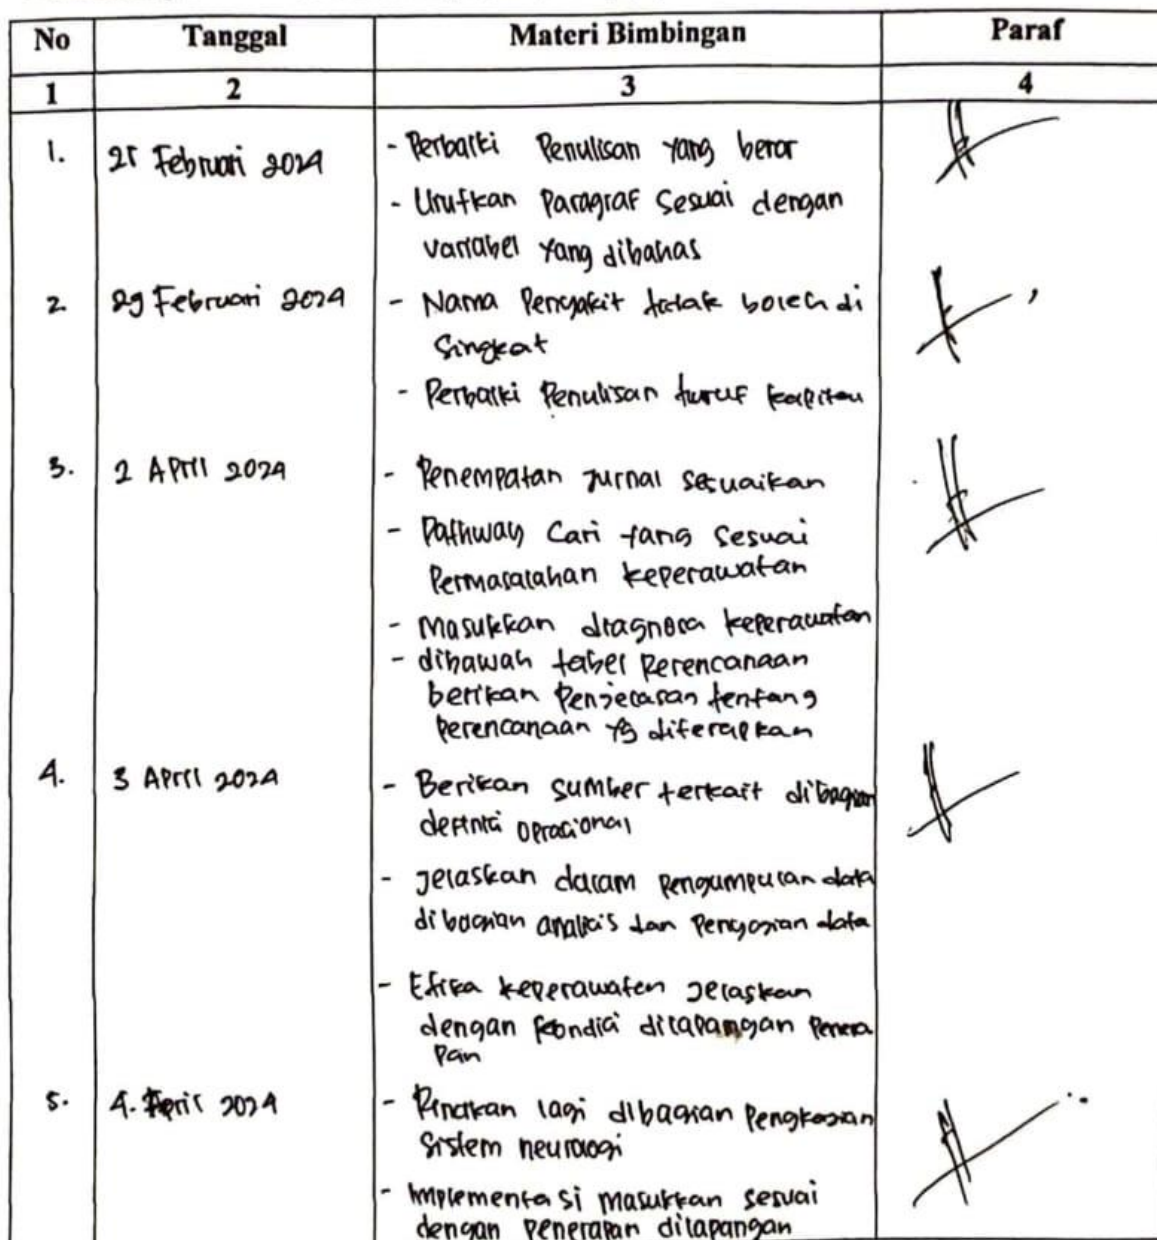 No Tanggal Materi Bimbingan Paraf
1 2 3 4
1. 21 Februari 2024 - Perbaiki Penulisan yang benar
- Urutkan Paragraf Sesuai dengan
variabel yang dibahas
2. 29 Februari 2024 - Nama Penyakit tidak boleh di
Singkat
- Perbaiki Penulisan huruf kapital
3. 2 April 2024 - Penempatan jurnal sesuaikan
- Pathway Cari yang Sesuai
Permasalahan keperawatan
- Masukkan diagnosa keperawatan
- dibawah tabel Perencanaan
berikan Penjelasan tentang
Perencanaan yg diterapkan
4. 3 April 2024 - Berikan sumber terkait dibagian
definisi operasional
- Jelaskan dalam pengumpulan data
dibagian analisis dan Penyajian data
- Etika keperawatan Jelaskan
dengan kondisi dilapangan Penera
Pan
5. 4. April 2024 - lagi dibagian Pengkajian
Sistem neurologi
- Implementasi masukkan sesuai
dengan penerapan dilapangan